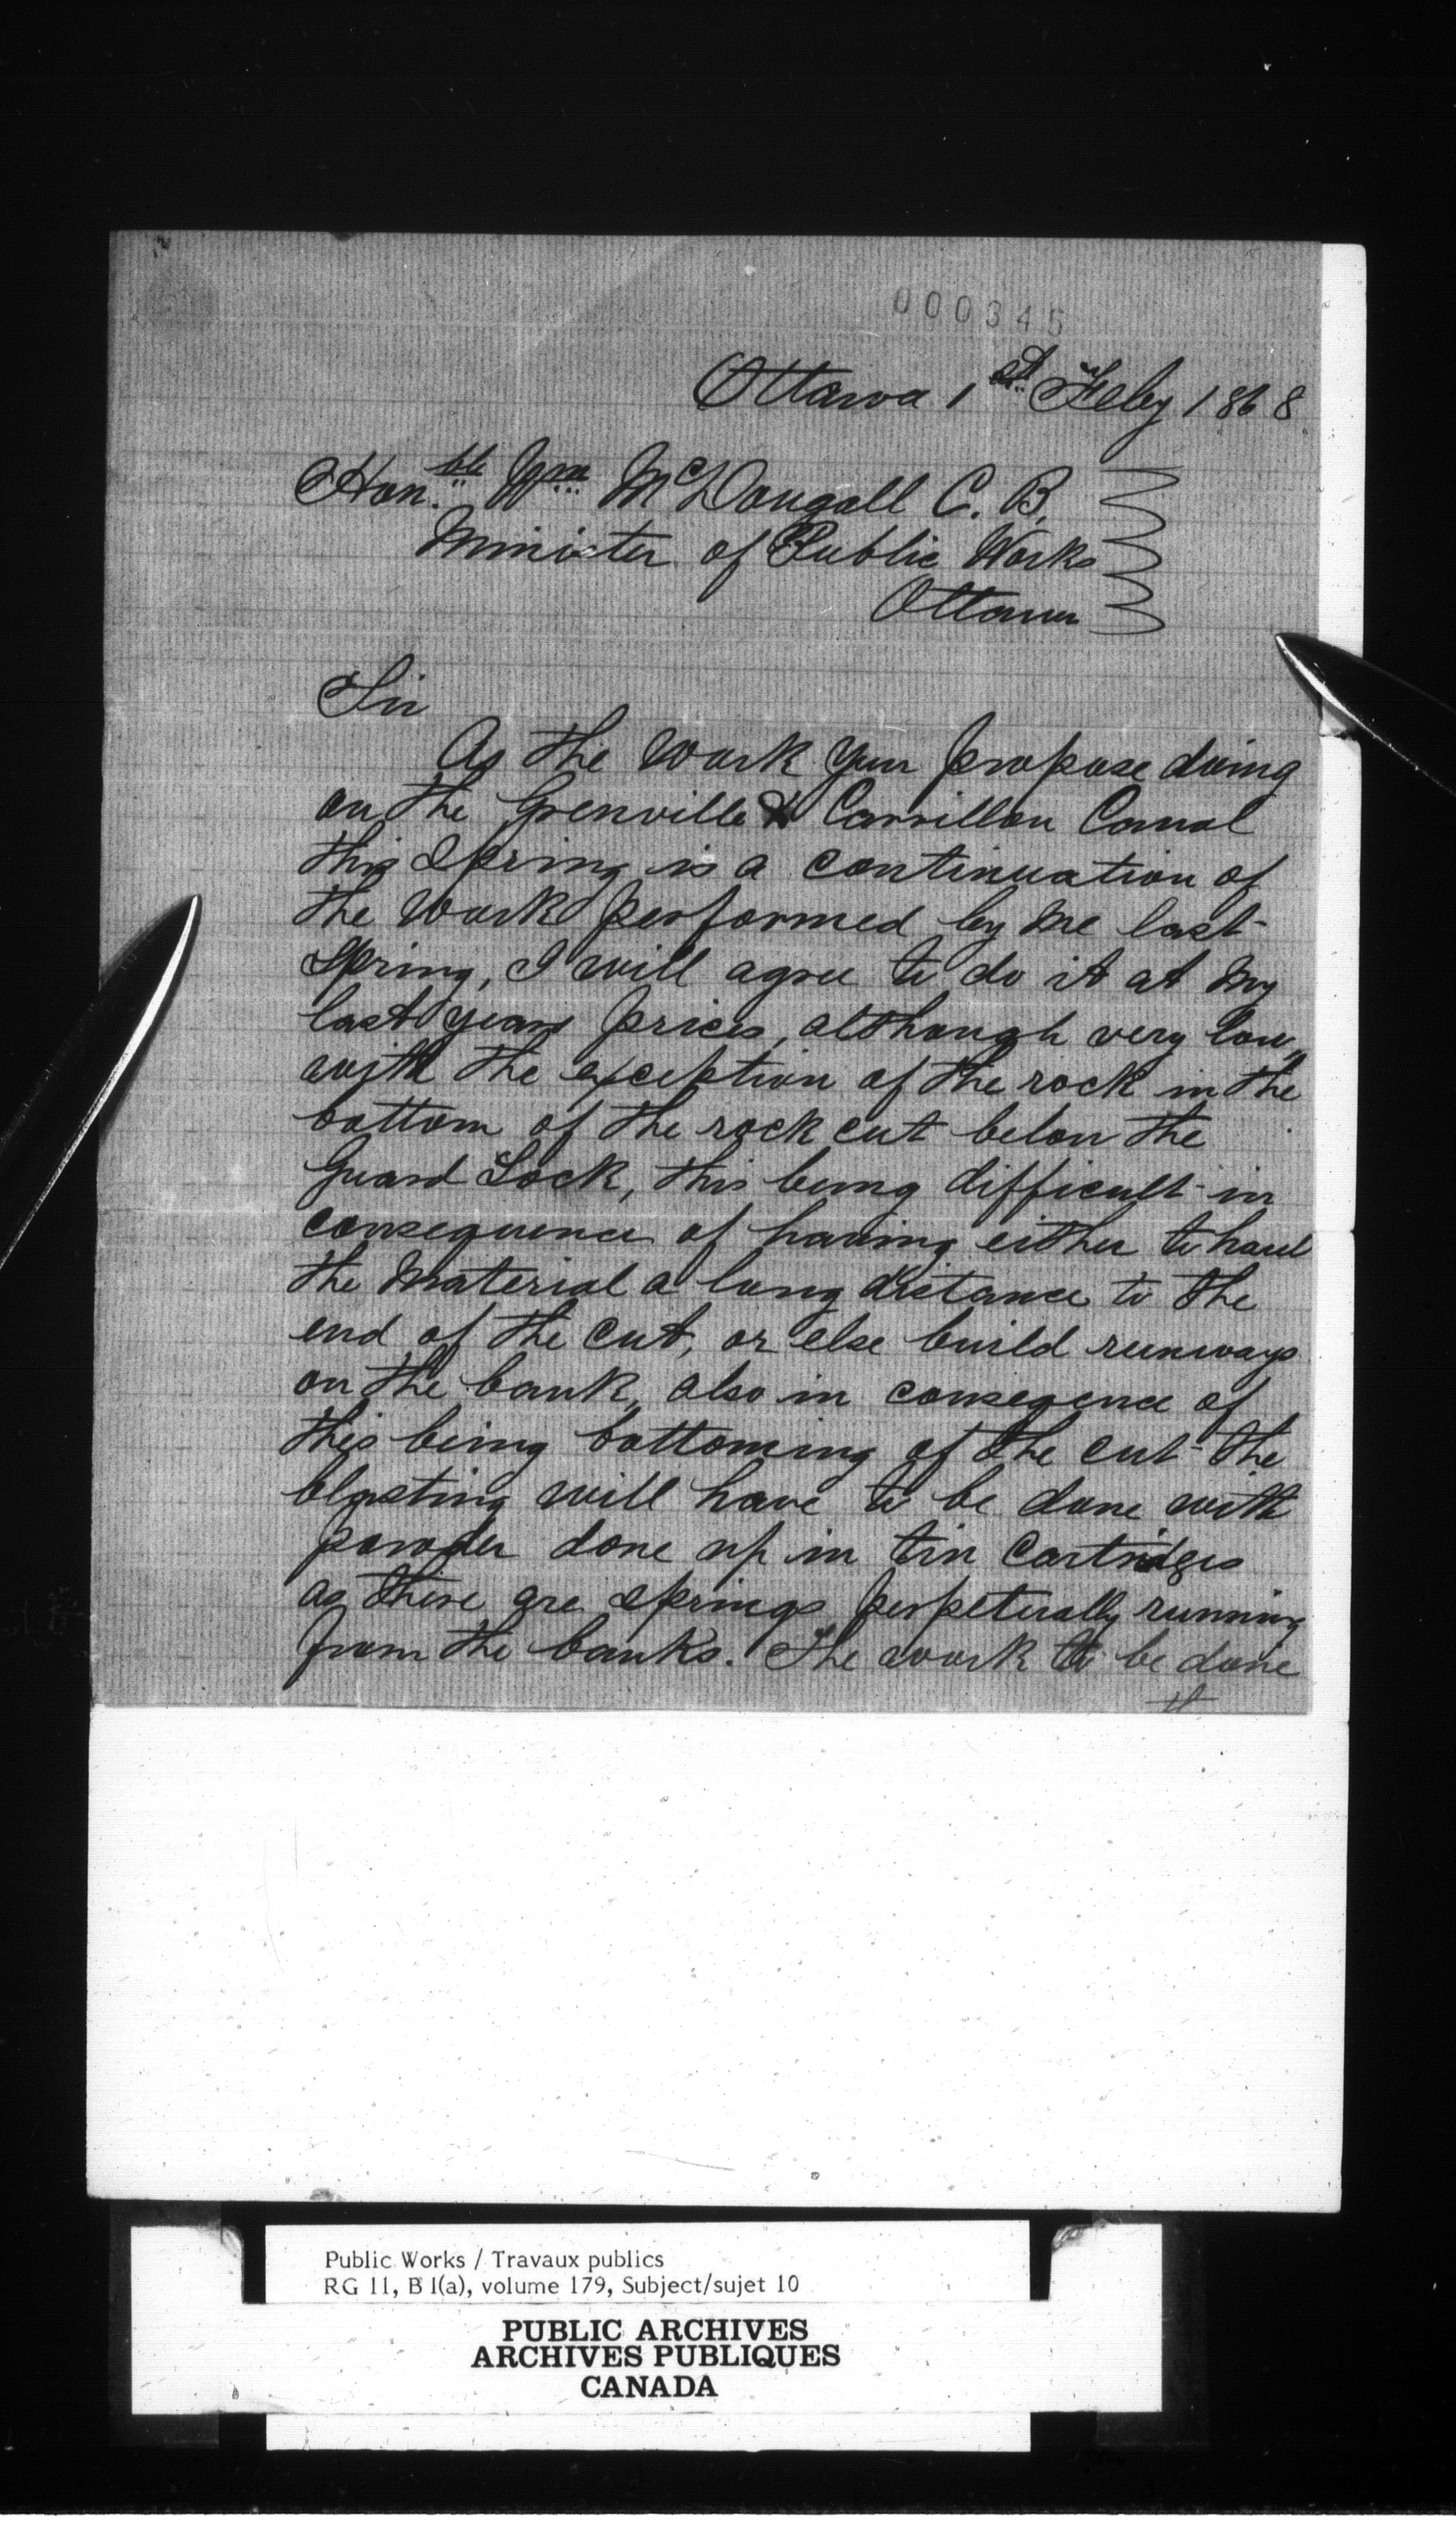 000345
Ottawa 1st Feby 1868
Hon.ble Wm McDougall C. B.
Minister of Public Works
Ottawa
Sir
As the work you propose doing
on the Grenville & Carrillon Canal
this Spring is a continuation of
the work performed by me last
Spring, I will agree to do it at my
last years prices, although very low,
with the exception of the rock in the
bottom of the rock cut below the
Guard Lock, this being difficult in
consequence of having either to haul
the material a long distance to the
end of the cut, or else build runways
on the bank, also in conseqence of
this being bottoming of the cut the
blasting will have to be done with
powder done up in tin Cartridges
as there are springs perpetually running
from the banks. The work to be done
th
Public Works / Travaux publics
RG 11, B 1(a), volume 179, Subject/sujet 10
PUBLIC ARCHIVES
ARCHIVES PUBLIQUES
CANADA